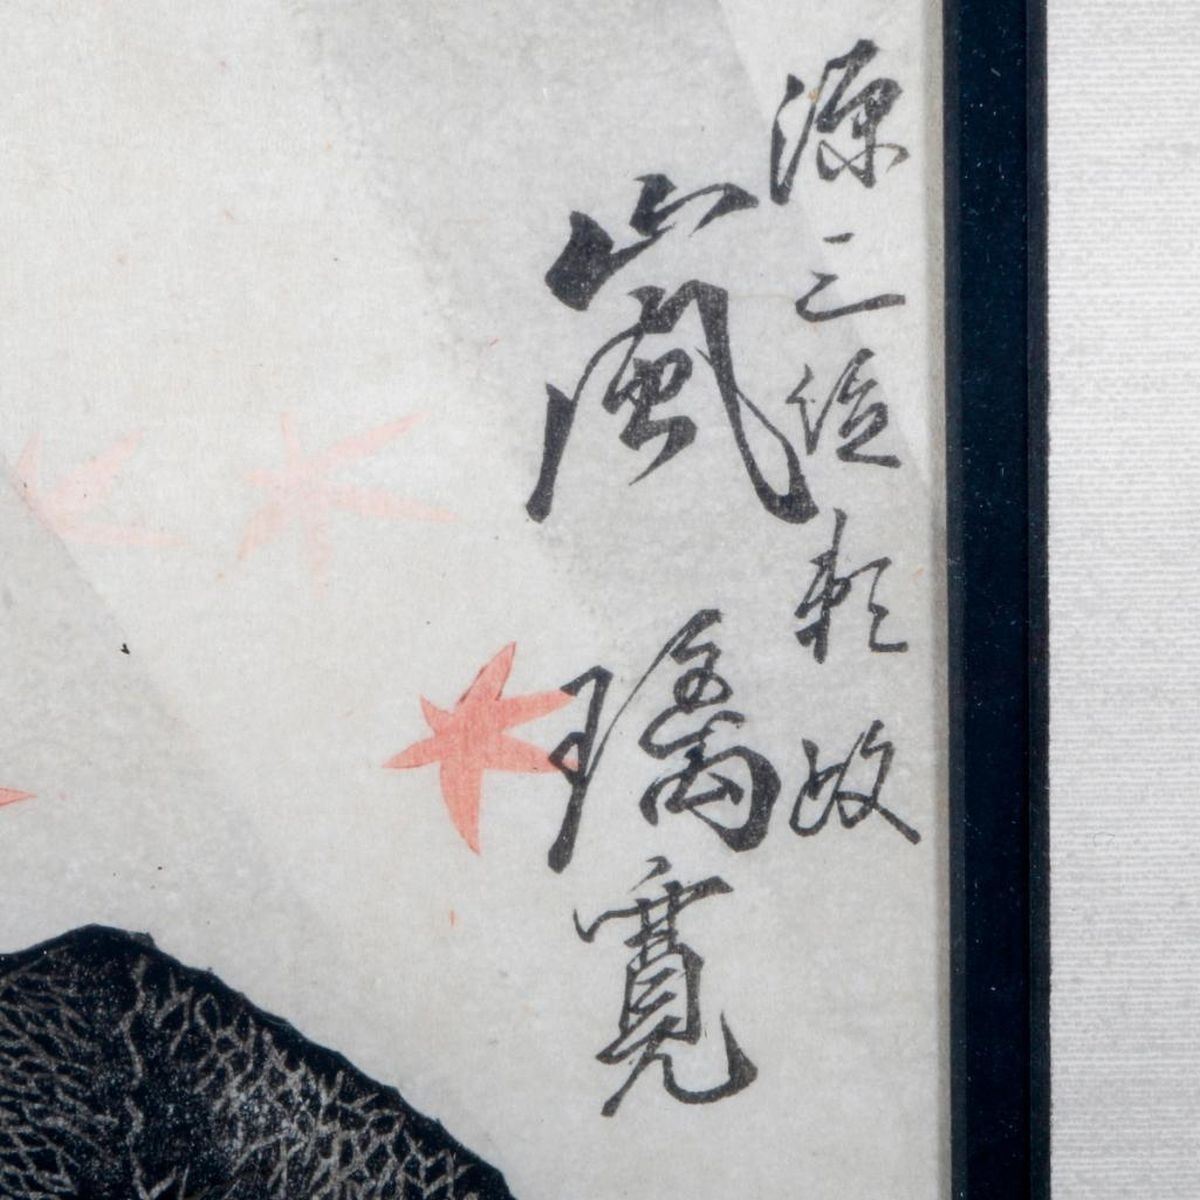 源三位頼政
嵐璃寛